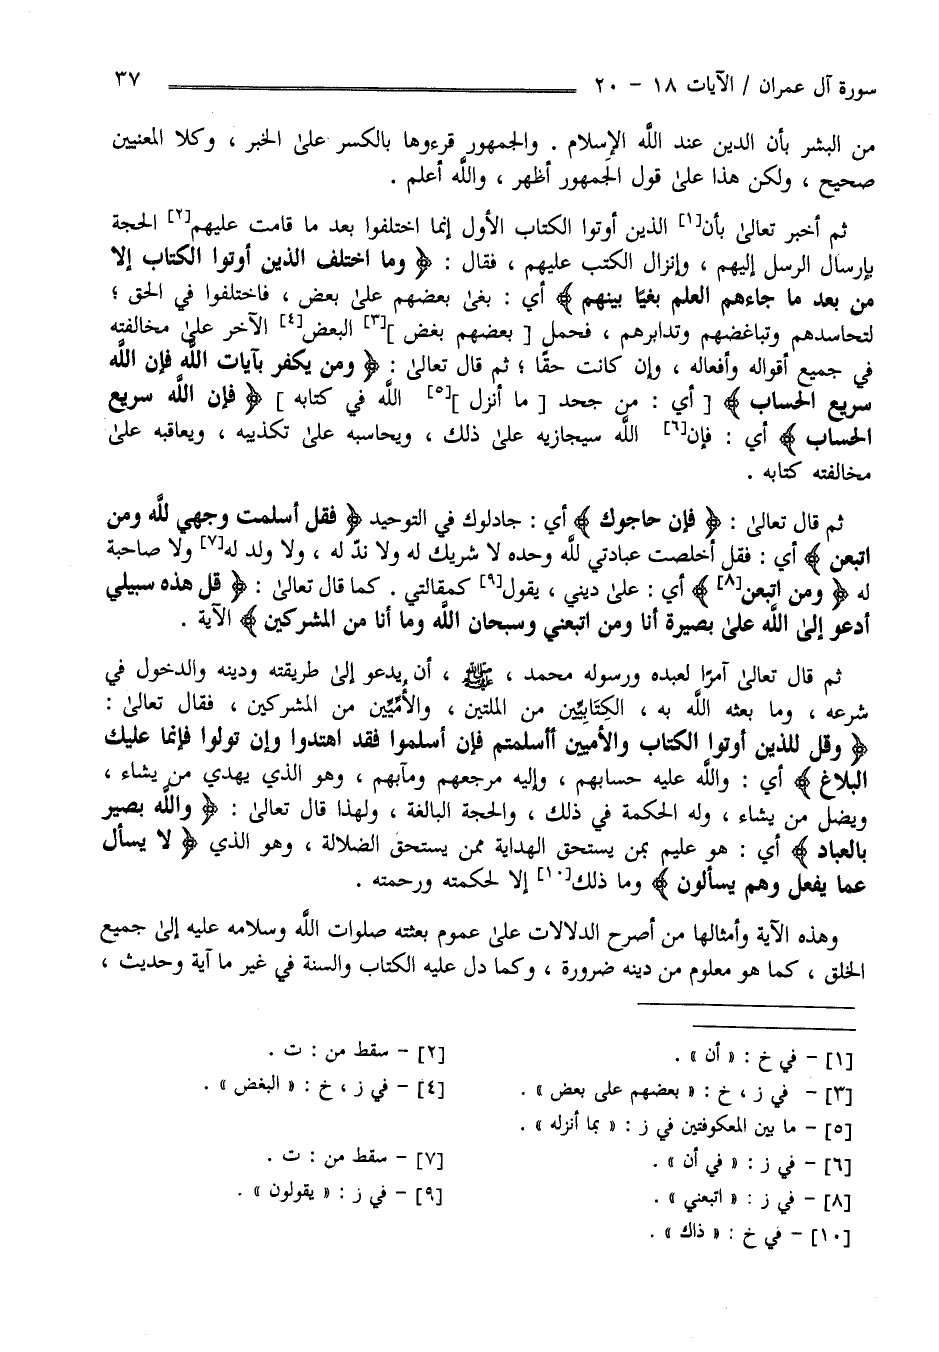 سورة آل عمران / الآيات ١٨ - ٢٠ ٣٧
من البشر بأن الدين عند اللَّه الإسلام . والجمهور قرءوها بالكسر علىٰ الخبر ، وكلا المعنيين
صحيح ، ولكن هذا علىٰ قول الجمهور أظهر ، واللَّه أعلم .
ثم أخبر تعالىٰ بأن[١] الذين أوتوا الكتاب الأول إنما اختلفوا بعد ما قامت عليهم[٢] الحجة
بإرسال الرسل إليهم ، وإنزال الكتب عليهم ، فقال : ﴿ وما اختلف الذين أوتوا الكتاب إلا
من بعد ما جاءهم العلم بغيًا بينهم ﴾ أي : بغىٰ بعضهم علىٰ بعض ، فاختلفوا في الحق ؛
لتحاسدهم وتباغضهم وتدابرهم ، فحمل [ بعضهم بغض ][٣] البعض[٤] الآخر علىٰ مخالفته
في جميع أقواله وأفعاله ، وإن كانت حقًا ؛ ثم قال تعالىٰ : ﴿ ومن يكفر بآيات اللَّه فإن اللَّه
سريع الحساب ﴾ [ أي : من جحد [ ما أنزل ][٥] اللَّه في كتابه ] ﴿ فإن اللَّه سريع
الحساب ﴾ أي : فإن[٦] اللَّه سيجازيه علىٰ ذلك ، ويحاسبه علىٰ تكذيبه ، ويعاقبه علىٰ
مخالفته كتابه .
ثم قال تعالىٰ : ﴿ فإن حاجوك ﴾ أي : جادلوك في التوحيد ﴿ فقل أسلمت وجهي للَّه ومن
اتبعن ﴾ أي : فقل أخلصت عبادتي للَّه وحده لا شريك له ولا ندّ له ، ولا ولد له[٧] ولا صاحبة
له ﴿ ومن اتبعن[٨] ﴾ أي : علىٰ ديني ، يقول[٩] كمقالتي . كما قال تعالىٰ : ﴿ قل هذه سبيلي
أدعو إلىٰ اللَّه علىٰ بصيرة أنا ومن اتبعني وسبحان اللَّه وما أنا من المشركين ﴾ الآية .
ثم قال تعالىٰ آمرًا لعبده ورسوله محمد ، ﷺ ، أن يدعو إلىٰ طريقته ودينه والدخول في
شرعه ، وما بعثه اللَّه به ، الكِتَابِيِّين من الملتين ، والأُمِّيِّين من المشركين ، فقال تعالىٰ :
﴿ وقل للذين أوتوا الكتاب والأميين أأسلمتم فإن أسلموا فقد اهتدوا وإن تولوا فإنما عليك
البلاغ ﴾ أي : واللَّه عليه حسابهم ، وإليه مرجعهم ومآبهم ، وهو الذي يهدي من يشاء ،
ويضل من يشاء ، وله الحكمة في ذلك ، والحجة البالغة ، ولهذا قال تعالىٰ : ﴿ واللَّه بصير
بالعباد ﴾ أي : هو عليم بمن يستحق الهداية ممن يستحق الضلالة ، وهو الذي ﴿ لا يسأل
عما يفعل وهم يسألون ﴾ وما ذلك[١٠] إلا لحكمته ورحمته .
وهذه الآية وأمثالها من أصرح الدلالات علىٰ عموم بعثته صلوات اللَّه وسلامه عليه إلىٰ جميع
الخلق ، كما هو معلوم من دينه ضرورة ، وكما دل عليه الكتاب والسنة في غير ما آية وحديث ،
[١] - في خ : « أن » . [٢] - سقط من : ت .
[٣] - في ز ، خ : « بعضهم على بعض » . [٤] - في ز ، خ : « البغض » .
[٥] - ما بين المعكوفتين في ز : « بما أنزله » .
[٦] - في ز : « في أن » . [٧] - سقط من : ت .
[٨] - في ز : « اتبعني » . [٩] - في ز : « يقولون » .
[١٠] - في خ : « ذاك » .